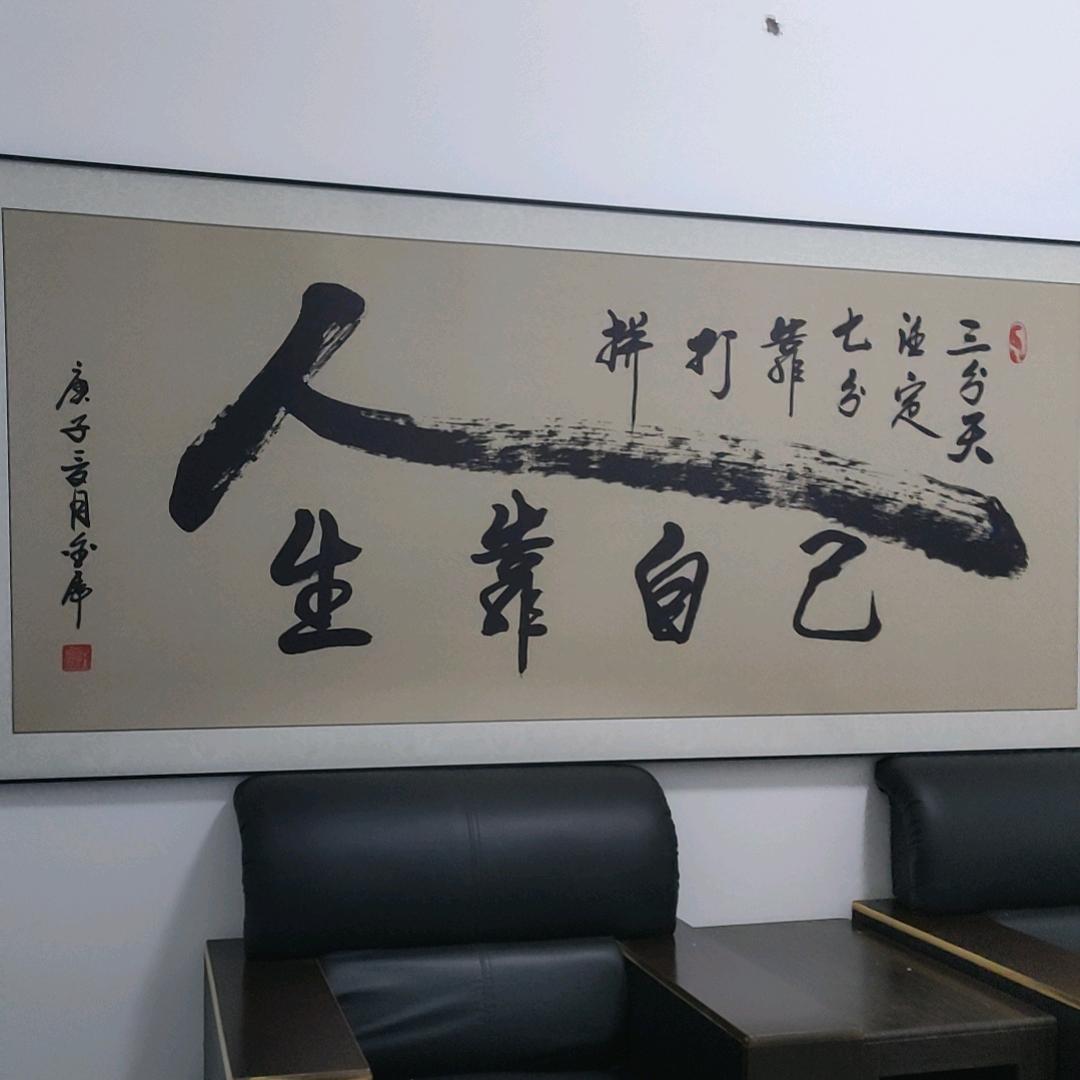 三分天
注定
七分
靠
打
拼
人
生靠自己
庚子月